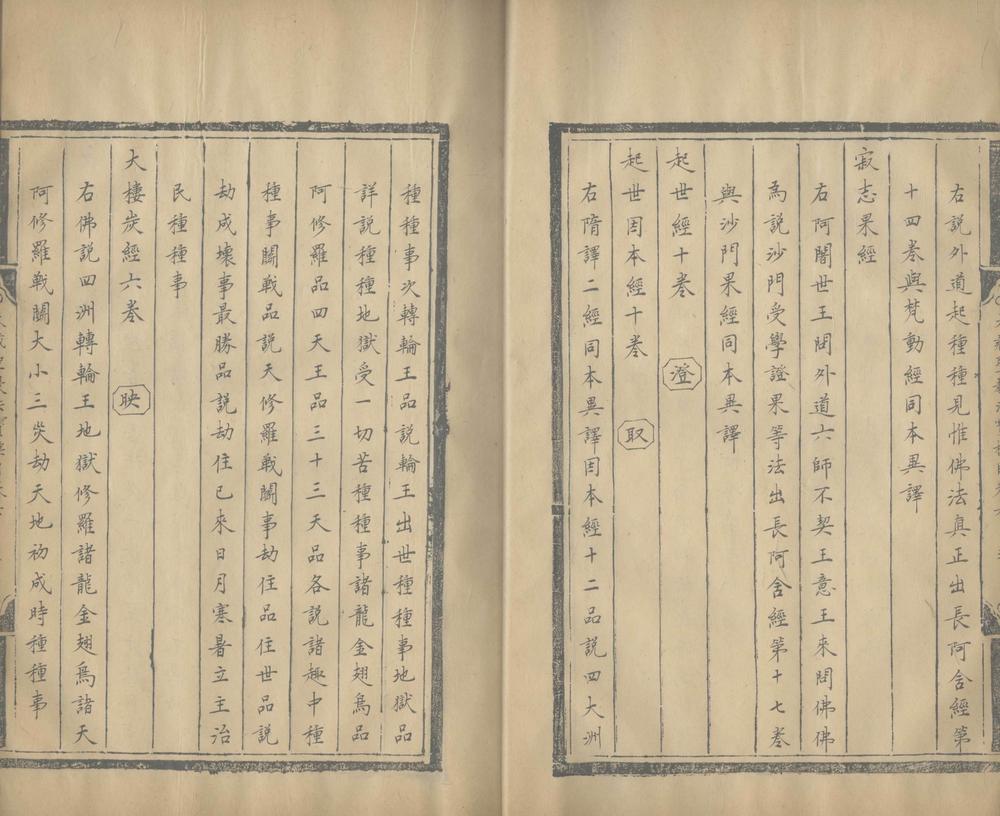 右説外道起種種見惟佛法真正出長阿含經第
十四卷與梵動經同本異譯
寂志果經
右阿闍世王問外道六師不契王意王來問佛佛
為說沙門受學證果等法出長阿含經第十七卷
與沙門果經同本異譯
起世經十卷 澄
起世因本經十卷 取
右隋譯二經同本異譯因本經十二品説四大洲
種種事次轉輪王品説輪王出世種種事地獄品
詳説種種地獄受一切苦種種事諸龍金翅鳥品
阿修羅品四天王品三十三天品各説諸趣中種
種事鬭戰品説天修羅戰鬭事劫住品住世品説
劫成壞事最勝品説劫住已來日月寒暑立主治
民種種事
大樓炭經六卷 映
右佛説四洲轉輪王地獄修羅諸龍金翅鳥諸天
阿修羅戰鬭大小三災劫天地初成時種種事